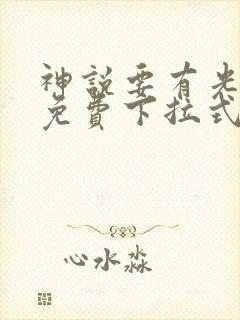 神說要有光
免費下拉式
心水淼